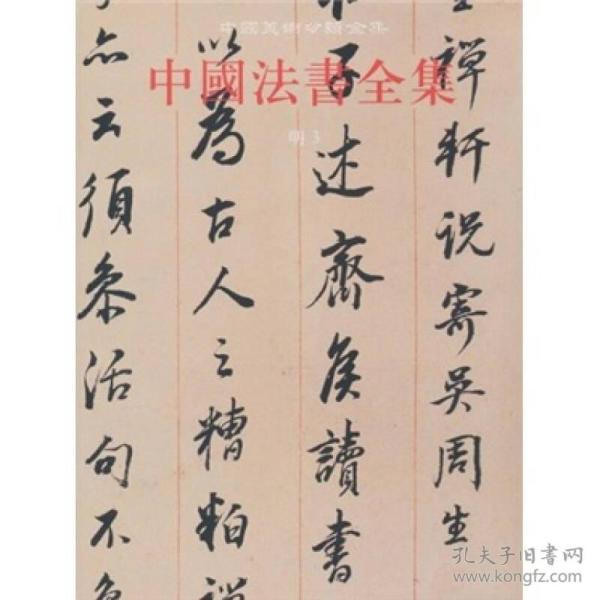 中國美術分類全集
中國法書全集
明 3
禪軒说寄吴周生
子述齋侯讀書
以為古人之糟粕禅
亦云须参活句不
孔夫子旧书网
www.kongfz.com